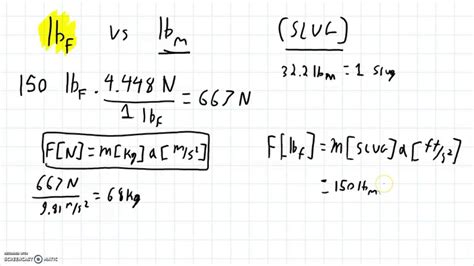 lb_F vs lb_m (SLUG)
32.2 lb_m = 1 Slug
150 lb_F · 4.448 N / 1 lb_F = 667 N
F[N] = m[kg] a[m/s²]
F[lb_F] = m[SLUG] a[ft/s²]
667 N / 9.81 m/s² = 68 kg
= 150 lb_m
RECORDED WITH
SCREENCAST-O-MATIC